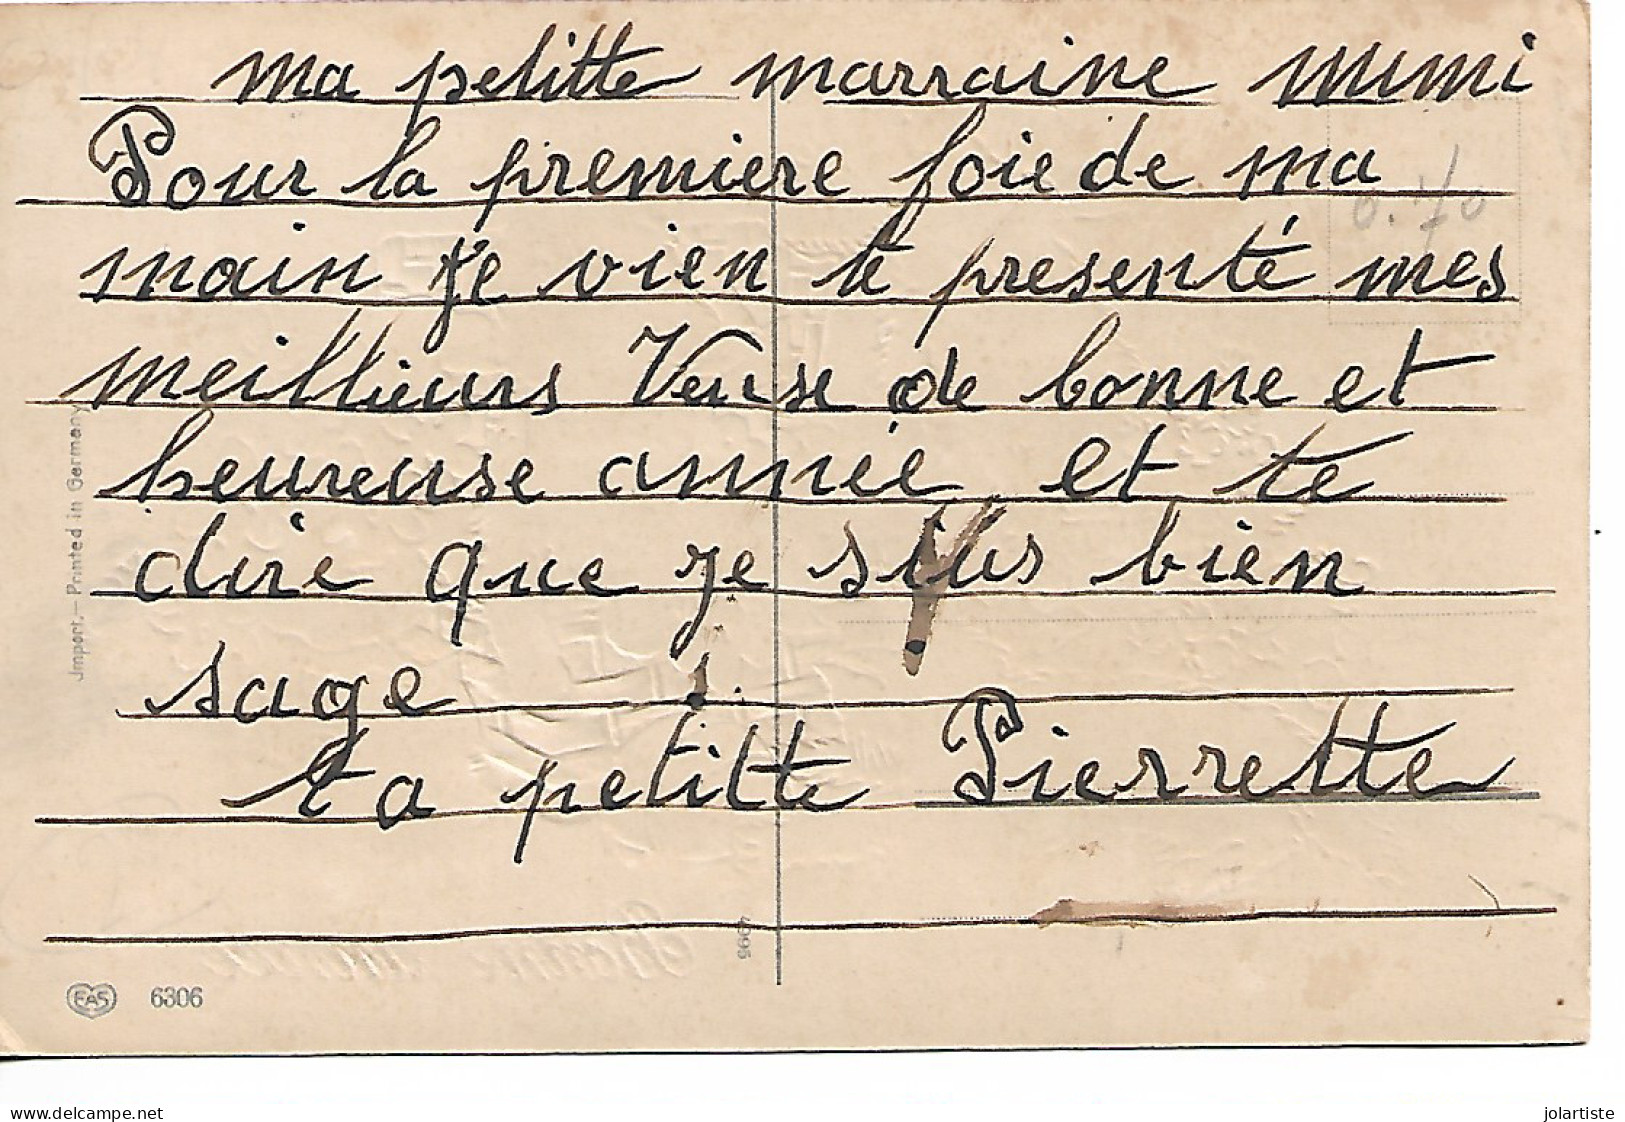 ma petitte marraine mimi
Pour la premiere foie de ma
main je vien te presenté mes
meillieurs Veuse de bonne et
heureuse année et te
dire que je sius bien
sage
ta petitte Pierrette
0.70
Import. — Printed in Germany
4995
EAS 6306
delcampe.net
jolartiste